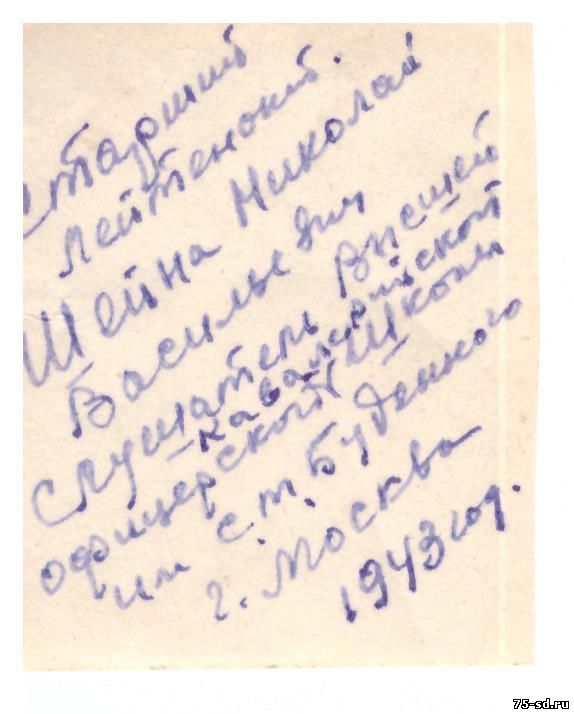 Старший
лейтенант.
Шейна Николай
Васильевич
Слушатель Высшей
кавалерийской
офицерской Школы
им с. м Буденного
г. Москва
1943 год.
75-sd.ru